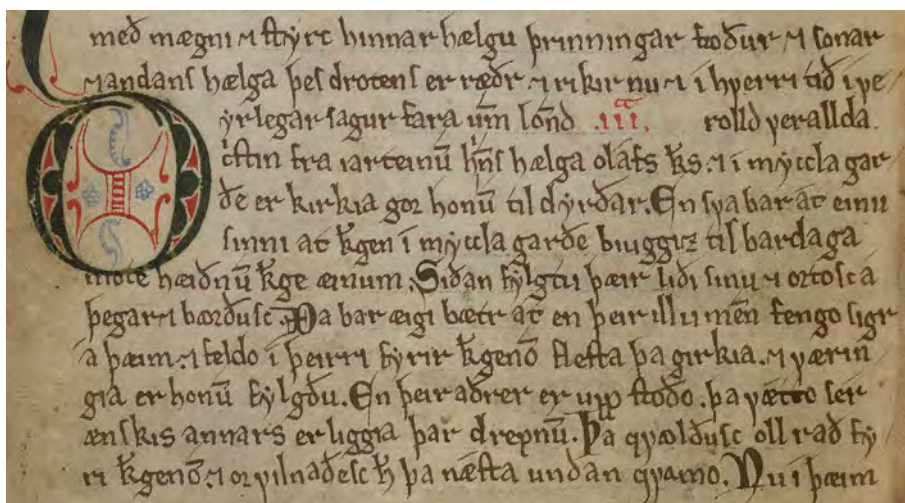 með mægni ⁊ styrc hinnar hælgu þrinningar foður ⁊ sonar
⁊ andans hælga þes drotens er ræðr ⁊ rikir nu ⁊ i hverri tið i ve
yrlegar sagur fara um̄ lond .iii. rolld verallda.
østin fra iarteinū hins hælga olafs ks. ⁊ i myccla gar
ðe er kirkia gor honū til dyrðar. En sva bar at einu
sinni at kgen i myccla garðe biuggiz til bardaga
mote hæiðnū kge æinum. Siðan fylgtu þæir liði sinu ⁊ ortosc a
þegar ⁊ bærðusc. Þa bar æigi bætr at en þeir illu men̄ fengo sigr
a þæim ⁊ feldo i þeirri fyrir kgenō flesta þa girkia. ⁊ værin
gia er honū fylgðu. En þeir aðrer er upp stoðo. þa vætto ser
ænskis annars er liggia þar drepnū. Þa qvolduse oll rað fy
ri kgenō. ⁊ orvilnaðesc h̄ þa næsta undan qvamo. Nu i þæim